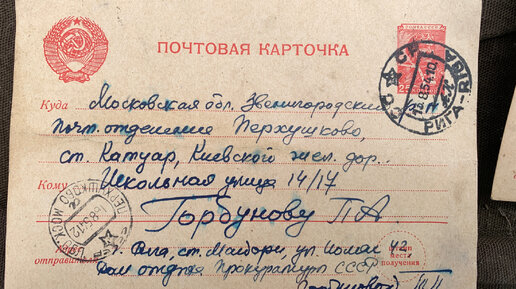 ПОЧТОВАЯ КАРТОЧКА
Куда Московская обл. Звенигородский
почт. отделение Перхушково,
ст. Катуар, Киевской жел. дор.
Кому Школьная улица 14/17
Горбунову П А.
г. Рига, ст. Майори, ул. 42,
отправителя Дом отдыха Прокуратуры СССР
РИГА